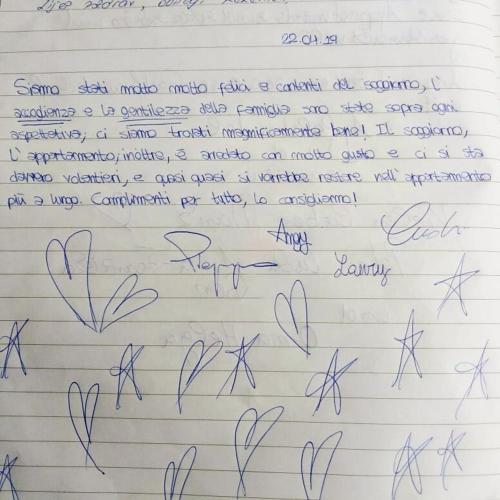 22.04.19
Siamo stati molto molto felici e contenti del soggiorno, l'
accoglienza e la gentilezza della famiglia sono state sopra ogni
aspettativa, ci siamo trovati magnificamente bene! Il soggiorno,
l'appartamento, inoltre, è arredato con molto gusto e ci si sta
davvero volentieri, e quasi quasi si vorrebbe restare nell'appartamento
più a lungo. Complimenti per tutto, lo consigliamo!
Angy
Lavry